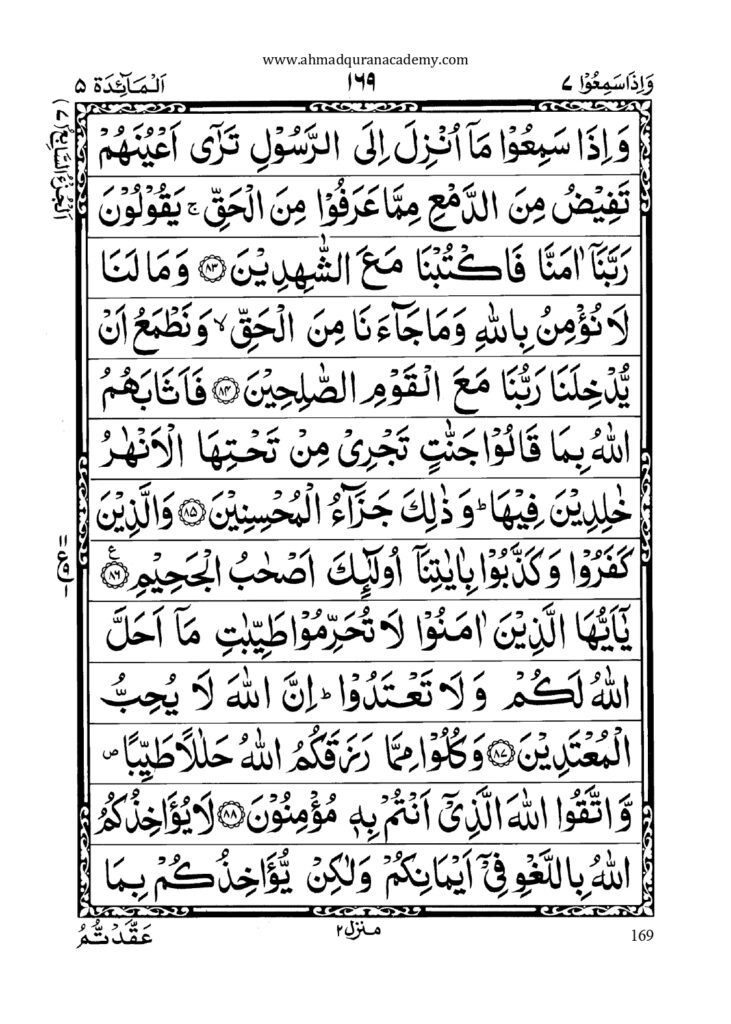 www.ahmadquranacademy.com
وَاِذَاسَمِعُوۡا ٧
١٦٩
اَلۡمَآئِدَة ٥
اَلۡجُزۡءُ السَّابِعُ (٧)
وَاِذَا سَمِعُوۡا مَاۤ اُنۡزِلَ اِلَى الرَّسُوۡلِ تَرٰٓى اَعۡيُنَهُمۡ
تَفِيۡضُ مِنَ الدَّمۡعِ مِمَّا عَرَفُوۡا مِنَ الۡحَـقِّ‌ۚ يَقُوۡلُوۡنَ
رَبَّنَاۤ اٰمَنَّا فَاكۡتُبۡنَا مَعَ الشّٰهِدِيۡنَ ﴿۸۳﴾ وَمَا لَـنَا
لَا نُؤۡمِنُ بِاللّٰهِ وَمَا جَآءَنَا مِنَ الۡحَـقِّۙ وَنَطۡمَعُ اَنۡ
يُّدۡخِلَـنَا رَبُّنَا مَعَ الۡقَوۡمِ الصّٰلِحِيۡنَ ﴿۸۴﴾ فَاَثَابَهُمُ
اللّٰهُ بِمَا قَالُوۡا جَنّٰتٍ تَجۡرِىۡ مِنۡ تَحۡتِهَا الۡاَنۡهٰرُ
خٰلِدِيۡنَ فِيۡهَا‌ؕ وَذٰلِكَ جَزَآءُ الۡمُحۡسِنِيۡنَ ﴿۸۵﴾ وَالَّذِيۡنَ
كَفَرُوۡا وَكَذَّبُوۡا بِاٰيٰتِنَاۤ اُولٰٓئِكَ اَصۡحٰبُ الۡجَحِيۡمِ ﴿۸۶﴾ ع
يٰۤـاَيُّهَا الَّذِيۡنَ اٰمَنُوۡا لَا تُحَرِّمُوۡا طَيِّبٰتِ مَاۤ اَحَلَّ
اللّٰهُ لَـكُمۡ وَلَا تَعۡتَدُوۡا‌ ؕ اِنَّ اللّٰهَ لَا يُحِبُّ
الۡمُعۡتَدِيۡنَ ﴿۸۷﴾ وَكُلُوۡا مِمَّا رَزَقَكُمُ اللّٰهُ حَلٰلاً طَيِّبًا ص
وَّاتَّقُوا اللّٰهَ الَّذِىۡۤ اَنۡـتُمۡ بِهٖ مُؤۡمِنُوۡنَ ﴿۸۸﴾ لَا يُؤَاخِذُكُمُ
اللّٰهُ بِاللَّغۡوِ فِىۡۤ اَيۡمَانِكُمۡ وَلٰـكِنۡ يُّؤَاخِذُكُمۡ بِمَا
١١
ع
٩
١
عَقَّدْتُّمُ
منزل ٢
169